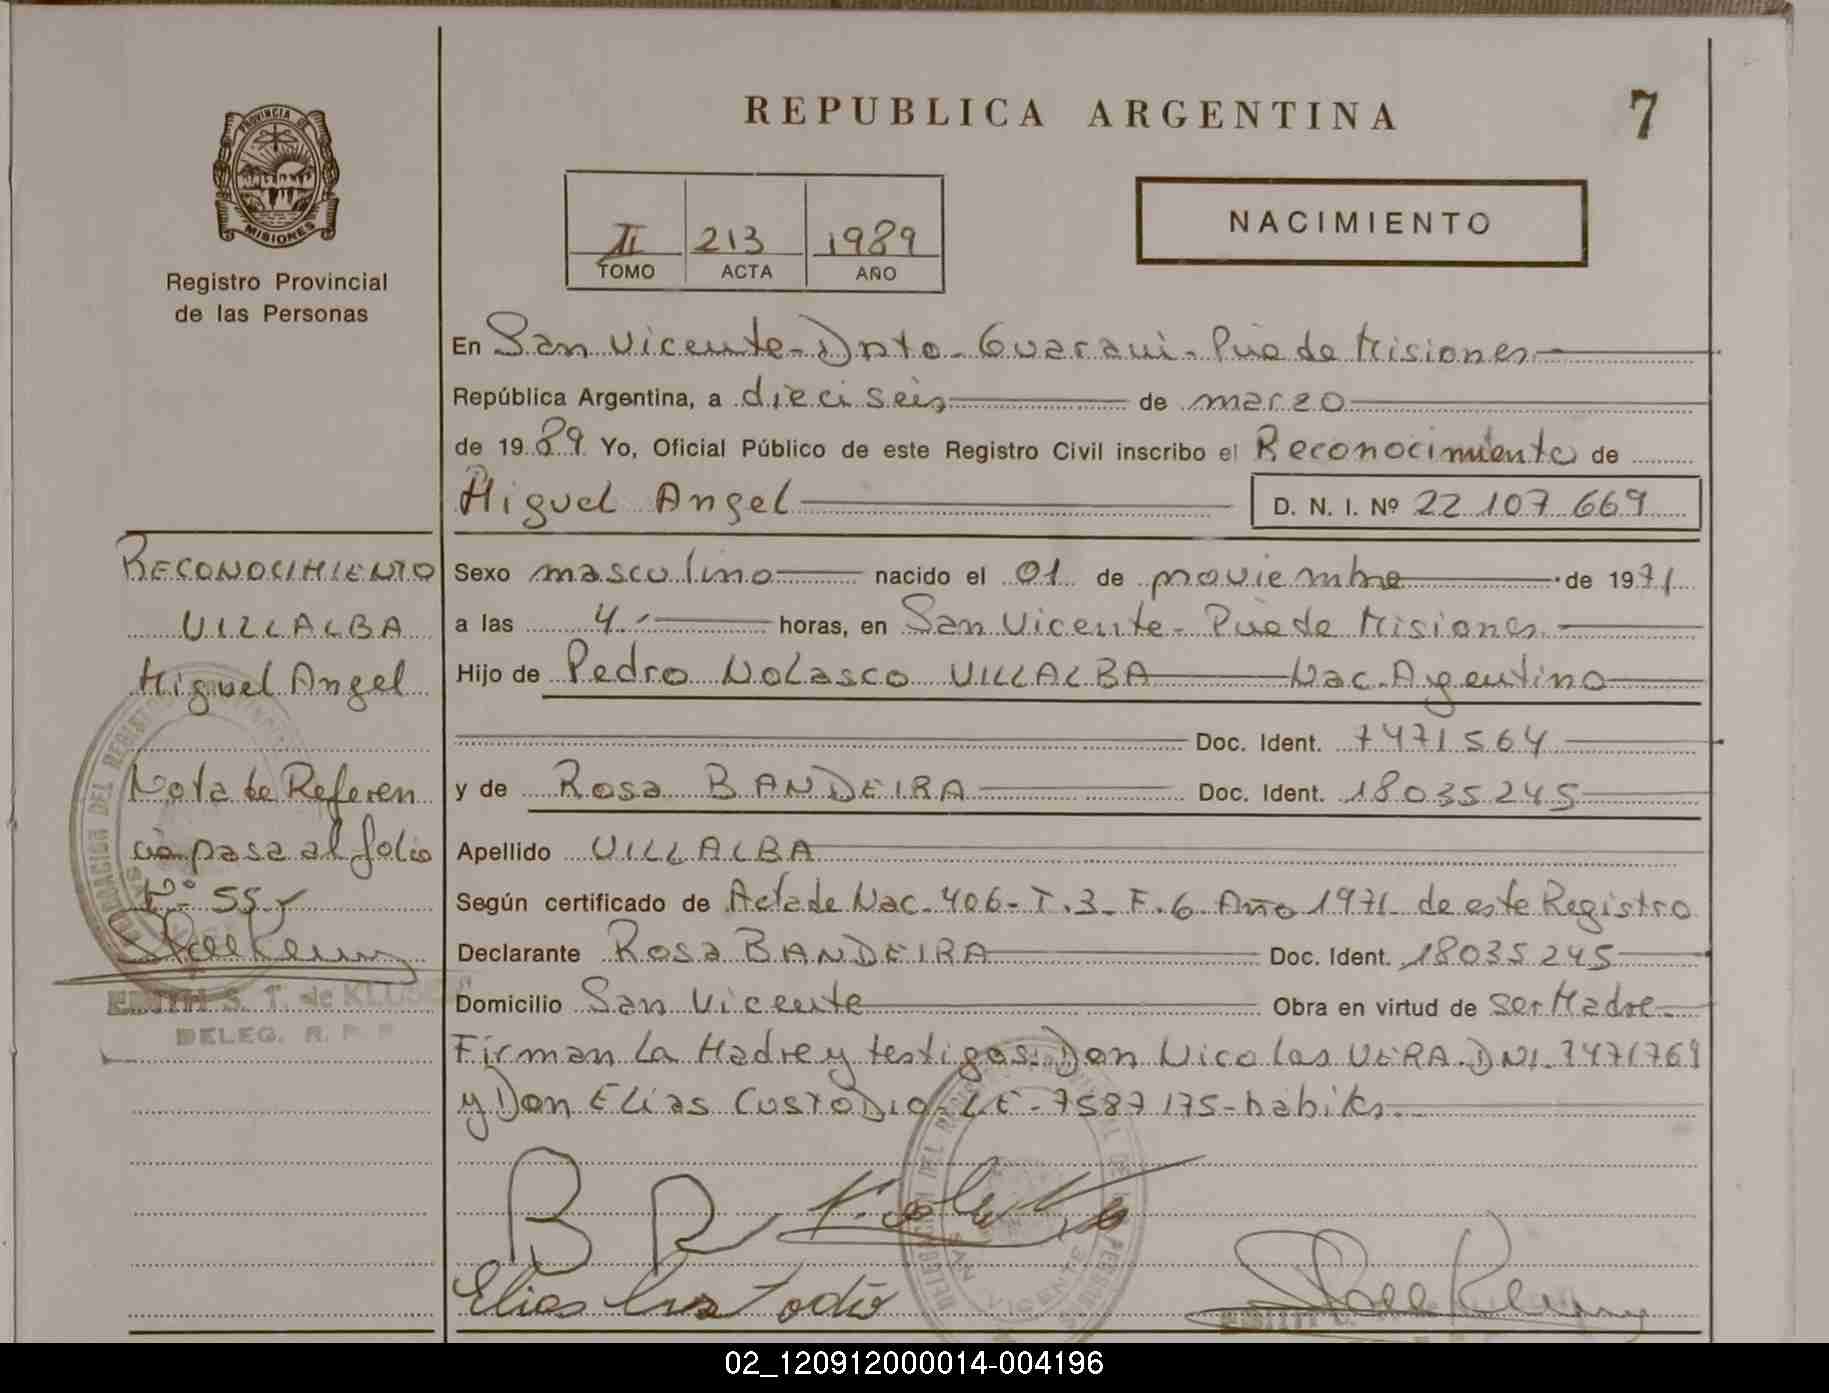 REPUBLICA ARGENTINA
7
PROVINCIA DE
MISIONES
Registro Provincial
de las Personas
II 213 1989
TOMO ACTA AÑO
NACIMIENTO
En San Vicente - Dpto - Guarani - Pcia de Misiones
República Argentina, a dieciseis de marzo
de 1989 Yo, Oficial Público de este Registro Civil inscribo el Reconocimiento de
Miguel Angel D. N. I. Nº 22 107 669
Sexo masculino nacido el 01 de noviembre de 1971
a las 4.- horas, en San Vicente - Pcia de Misiones
Hijo de Pedro Nolasco VILLALBA Nac. Argentino
Doc. Ident. 7471564
y de Rosa BANDEIRA Doc. Ident. 18035245
Apellido VILLALBA
Según certificado de Acta de Nac - 406 - T. 3 - F. 6 Año 1971 de este Registro
Declarante Rosa BANDEIRA Doc. Ident. 18035245
Domicilio San Vicente Obra en virtud de ser Madre -
Firman la Madre y testigos: Don Nicolas VERA - DNI - 7471769
y Don Elias CUSTODIO - LE - 7587175 - habiles.
B R
Elias Custodio
RECONOCIMIENTO
VILLALBA
Miguel Angel
Nota de Referen
cia pasa al folio
Nº 55
EDITH S. T. de
DELEG. R. P. P
SAN VICENTE
02_120912000014-004196